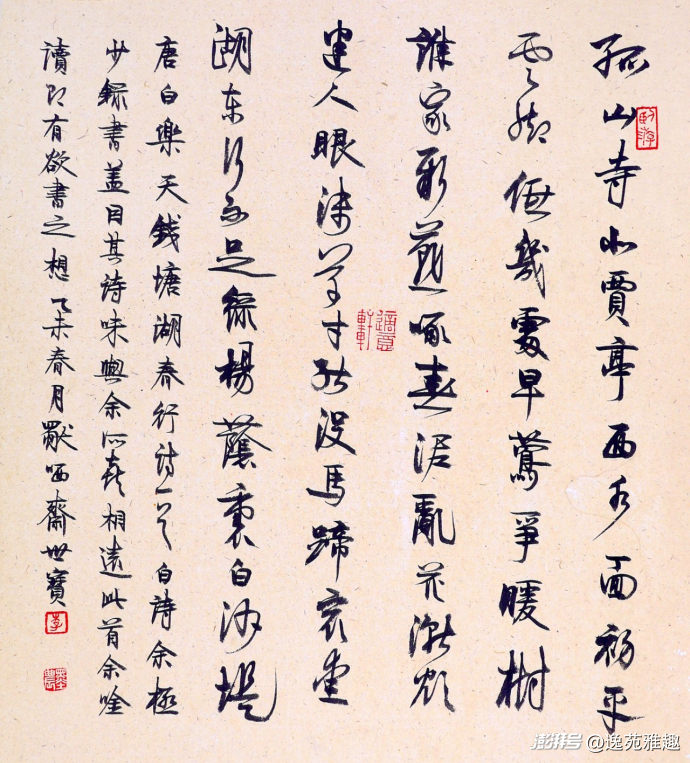 孤山寺北賈亭西水面初平
雲脚低幾處早鶯爭暖樹
誰家新燕啄春泥亂花漸欲
迷人眼淺草才能没馬蹄最愛
湖東行不足綠楊蔭裏白沙堤
唐白樂天錢塘湖春行詩一首白詩余極
少錄書蓋因其詩味與余所喜相遠此首余唫
讀即有欲書之想乙未春月猒哂齋世寶
卧游
適意軒
李
澎湃号@逸苑雅趣